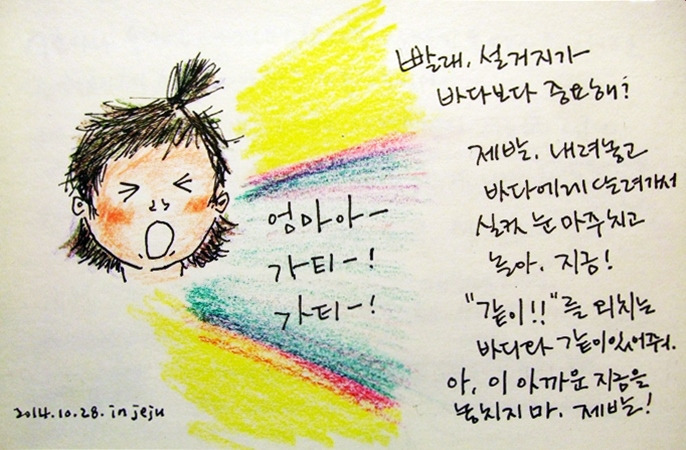 빨래, 설거지가
바다보다 중요해?
엄마아-
가티-!
가티-!
제발, 내려놓고
바다에게 달려가서
실컷 눈 마주치고
놀아, 지금!
"같이!!"를 외치는
바다와 같이있어줘.
아, 이 아까운 지금을
놓치지 마, 제발!
2014.10.28. in jeju